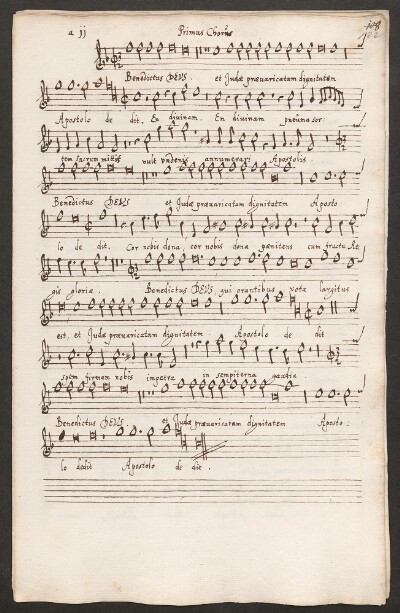 a 11 Primus Chorus
102
Benedictus DEUS. et Judæ prævaricatam dignitatem
Apostolo de dit. En divinam. En divinam
sacrum vult undenis annumerari Apostolis
Benedictus DEUS et Judæ prævaricatam dignitatem Aposto
lo de dit. Cor nobis dona, cor nobis dona pænitens cum fructu Re
gis gloriæ. Benedictus DEUS qui orantibus vota largitus
est, et Judæ prævaricatam dignitatem Apostolo de dit
spem firmam nobis impetre in sempiterna gaudia.
Benedictus DEUS. et Judæ prævaricatam dignitatem Aposto-
lo dedit Apostolo de dit.